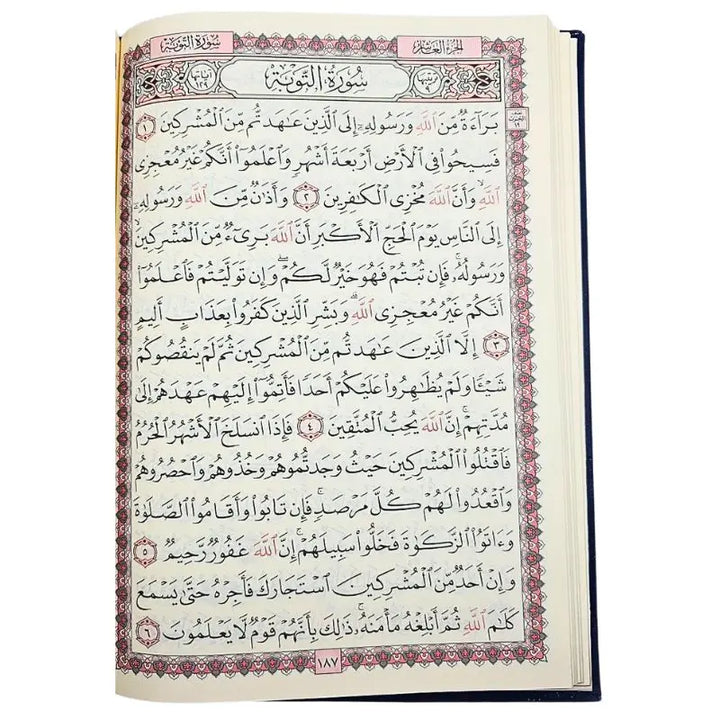 سورة التوبة
الجزء العاشر
آياتها ١٢٩
سورة التوبة
ترتيبها ٩
بَرَآءَةٌ مِّنَ ٱللَّهِ وَرَسُولِهِۦٓ إِلَى ٱلَّذِينَ عَٰهَدتُّم مِّنَ ٱلْمُشْرِكِينَ ١
فَسِيحُوا۟ فِى ٱلْأَرْضِ أَرْبَعَةَ أَشْهُرٍ وَٱعْلَمُوٓا۟ أَنَّكُمْ غَيْرُ مُعْجِزِى
ٱللَّهِ ۙ وَأَنَّ ٱللَّهَ مُخْزِى ٱلْكَٰفِرِينَ ٢ وَأَذَٰنٌ مِّنَ ٱللَّهِ وَرَسُولِهِۦٓ
إِلَى ٱلنَّاسِ يَوْمَ ٱلْحَجِّ ٱلْأَكْبَرِ أَنَّ ٱللَّهَ بَرِىٓءٌ مِّنَ ٱلْمُشْرِكِينَ
وَرَسُولُهُۥ ۚ فَإِن تُبْتُمْ فَهُوَ خَيْرٌ لَّكُمْ ۖ وَإِن تَوَلَّيْتُمْ فَٱعْلَمُوٓا۟
أَنَّكُمْ غَيْرُ مُعْجِزِى ٱللَّهِ ۗ وَبَشِّرِ ٱلَّذِينَ كَفَرُوا۟ بِعَذَابٍ أَلِيمٍ
٣ إِلَّا ٱلَّذِينَ عَٰهَدتُّم مِّنَ ٱلْمُشْرِكِينَ ثُمَّ لَمْ يَنقُصُوكُمْ
شَيْـًٔا وَلَمْ يُظَٰهِرُوا۟ عَلَيْكُمْ أَحَدًا فَأَتِمُّوٓا۟ إِلَيْهِمْ عَهْدَهُمْ إِلَىٰ
مُدَّتِهِمْ ۚ إِنَّ ٱللَّهَ يُحِبُّ ٱلْمُتَّقِينَ ٤ فَإِذَا ٱنسَلَخَ ٱلْأَشْهُرُ ٱلْحُرُمُ
فَٱقْتُلُوا۟ ٱلْمُشْرِكِينَ حَيْثُ وَجَدتُّمُوهُمْ وَخُذُوهُمْ وَٱحْصُرُوهُمْ
وَٱقْعُدُوا۟ لَهُمْ كُلَّ مَرْصَدٍ ۚ فَإِن تَابُوا۟ وَأَقَامُوا۟ ٱلصَّلَوٰةَ
وَءَاتَوُا۟ ٱلزَّكَوٰةَ فَخَلُّوا۟ سَبِيلَهُمْ ۚ إِنَّ ٱللَّهَ غَفُورٌ رَّحِيمٌ ٥
وَإِنْ أَحَدٌ مِّنَ ٱلْمُشْرِكِينَ ٱسْتَجَارَكَ فَأَجِرْهُ حَتَّىٰ يَسْمَعَ
كَلَٰمَ ٱللَّهِ ثُمَّ أَبْلِغْهُ مَأْمَنَهُۥ ۚ ذَٰلِكَ بِأَنَّهُمْ قَوْمٌ لَّا يَعْلَمُونَ ٦
١٨٧